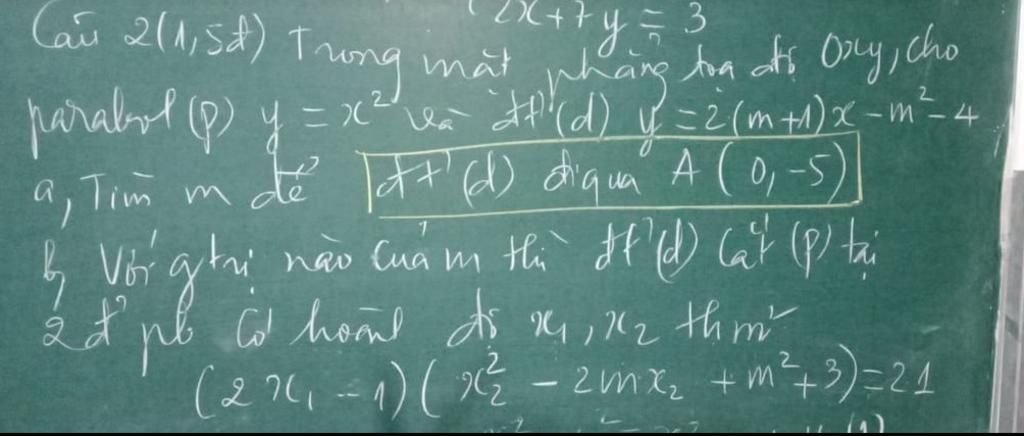 2x+7y=3
Câu 2(1,5đ) Trong mặt phẳng tọa độ Oxy, cho
parabol (p) y = x² và đt'(d) y = 2(m+1)x - m² - 4
a, Tìm m để đt'(d) đi qua A (0, -5)
b, Với gtrị nào của m thì đt'(d) cắt (p) tại
2đ' pb có hoành độ x₁, x₂ thm²
(2x₁ - 1)(x₂² - 2mx₂ + m² + 3) = 21